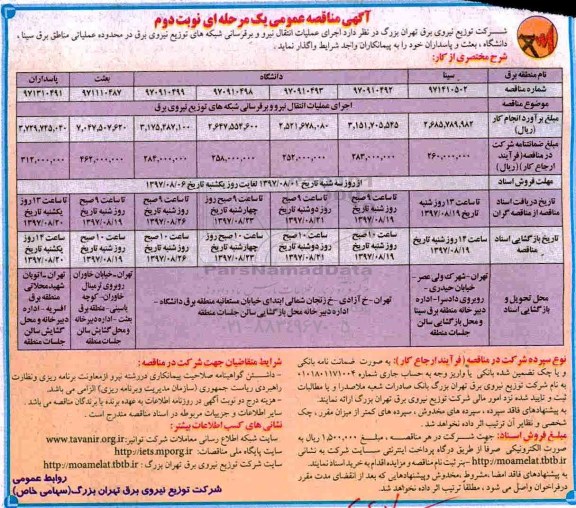 آگهی مناقصه عمومی یک مرحله ای نوبت دوم
شرکت توزیع نیروی برق تهران بزرگ در نظر دارد اجرای عملیات انتقال نیرو و برقرسانی شبکه های توزیع نیروی برق در محدوده عملیاتی مناطق برق سینا ،
دانشگاه ، بعثت و پاسداران خود را به پیمانکاران واجد شرایط واگذار نماید .
شرح مختصری از کار:
نام منطقه برق سینا دانشگاه بعثت پاسداران
شماره مناقصه ۹۷۱۴۱۰۵۰۲ ۹۷۰۹۱۰۴۹۲ ۹۷۰۹۱۰۴۹۳ ۹۷۰۹۱۰۴۹۸ ۹۷۰۹۱۰۴۹۹ ۹۷۱۱۱۰۴۸۷ ۹۷۱۳۱۰۴۹۱
موضوع مناقصه اجرای عملیات انتقال نیرو و برقرسانی شبکه های توزیع نیروی برق
مبلغ برآورد انجام کار (ریال) ۲,۶۸۵,۷۸۹,۹۸۲ ۳,۱۵۱,۷۰۵,۵۴۵ ۲,۵۲۱,۶۷۸,۰۸۰ ۲,۶۴۷,۵۵۴,۶۰۰ ۳,۱۷۵,۲۸۷,۱۰۰ ۷,۰۴۷,۵۰۷,۶۲۰ ۳,۷۲۹,۷۴۵,۰۴۰
مبلغ ضمانتنامه شرکت در مناقصه(فرآیند ارجاع کار)(ریال) ۲۶۰,۰۰۰,۰۰۰ ۲۸۳,۰۰۰,۰۰۰ ۲۵۲,۰۰۰,۰۰۰ ۲۵۸,۰۰۰,۰۰۰ ۲۸۴,۰۰۰,۰۰۰ ۴۶۲,۰۰۰,۰۰۰ ۳۱۲,۰۰۰,۰۰۰
مهلت فروش اسناد از روز سه شنبه تاریخ ۱۳۹۷/۰۸/۰۱ لغایت روز یکشنبه تاریخ ۱۳۹۷/۰۸/۰۶
تاریخ دریافت اسناد مناقصه از مناقصه گران تا ساعت ۱۳ روز شنبه تاریخ ۱۳۹۷/۰۸/۱۹ تا ساعت ۹ صبح روز شنبه تاریخ ۱۳۹۷/۰۸/۱۹ تا ساعت ۹ صبح روز دوشنبه تاریخ ۱۳۹۷/۰۸/۲۱ تا ساعت ۹ صبح روز چهارشنبه تاریخ ۱۳۹۷/۰۸/۲۳ تا ساعت ۹ صبح روز شنبه تاریخ ۱۳۹۷/۰۸/۲۶ تا ساعت ۹ صبح روز شنبه تاریخ ۱۳۹۷/۰۸/۱۹ تا ساعت ۱۳ روز یکشنبه تاریخ ۱۳۹۷/۰۸/۲۰
تاریخ بازگشایی اسناد مناقصه ساعت ۱۴ روز شنبه تاریخ ۱۳۹۷/۰۸/۱۹ ساعت ۱۰ صبح روز شنبه تاریخ ۱۳۹۷/۰۸/۱۹ ساعت ۱۰ صبح روز دوشنبه تاریخ ۱۳۹۷/۰۸/۲۱ ساعت ۱۰ صبح روز چهارشنبه تاریخ ۱۳۹۷/۰۸/۲۳ ساعت ۱۰ صبح روز شنبه تاریخ ۱۳۹۷/۰۸/۲۶ ساعت ۱۰ صبح روز شنبه تاریخ ۱۳۹۷/۰۸/۱۹ ساعت ۱۴ روز یکشنبه تاریخ ۱۳۹۷/۰۸/۲۰
محل تحویل و بازگشایی اسناد تهران -شهرک ولی عصر - خیابان حیدری - روبروی دادسرا - اداره دبیرخانه منطقه برق سینا و محل بازگشایی سالن جلسات منطقه تهران -خ آزادی -خ زنجان شمالی ابتدای خیابان سمنانیه منطقه برق دانشگاه - اداره دبیرخانه محل بازگشایی سالن جلسات منطقه تهران -خیابان خاوران روبروی ترمینال خاوران- کوچه یاسینی- منطقه برق بعثت - اداره دبیرخانه و محل گشایش سالن جلسات منطقه تهران -اتوبان شهیدمحلاتی منطقه برق افسریه - اداره دبیرخانه و محل گشایش سالن جلسات منطقه
ParsNamadData
۰۲۱-۸۸۳۴۹۶۷۰-۵
نوع سپرده شرکت در مناقصه (فرآیند ارجاع کار): به صورت ضمانت نامه بانکی
و یا چک تضمین شده بانکی یا واریز وجه به حساب جاری شماره ۰۱۰۱۸۰۱۱۷۱۰۰۴
به نام شرکت توزیع نیروی برق تهران بزرگ بانک صادرات شعبه ملاصدرا و یا مطالبات
ثبت و تایید شده نزد امور مالی شرکت توزیع نیروی برق تهران بزرگ ارائه نمایند.
به پیشنهادهای فاقد سپرده ، سپرده های مخدوش ، سپرده های کمتر از میزان مقرر ، چک
شخصی و نظایر آن ترتیب اثر داده نخواهد شد .
مبلغ فروش اسناد: جهت شرکت در هر مناقصه ، مبلغ ۱,۵۰۰,۰۰۰ ریال به
صورت الکترونیکی صرفا از طریق درگاه پرداخت اینترنتی سایت شرکت به نشانی
http://moamelat.tbtb.ir -بنرثبت نام مناقصه و مزایده اقدام به خرید اسناد نمایند.
به پیشنهادهای فاقد امضا ،مشروط ،مخدوش وپیشنهادهایی که بعد از انقضای مدت مقرر
درفراخوان واصل می شود ، مطلقاً ترتیب اثر داده نخواهد شد.
شرایط متقاضیان جهت شرکت در مناقصه :
- داشتن گواهینامه صلاحیت پیمانکاری دررشته نیرو ازمعاونت برنامه ریزی ونظارت
راهبردی ریاست جمهوری (سازمان مدیریت وبرنامه ریزی) الزامی می باشد.
- هزینه درج دو نوبت آگهی در روزنامه اطلاعات به عهده برنده یا برندگان مناقصه می باشد .
سایر اطلاعات و جزییات مربوطه در اسناد مناقصه مندرج است .
نشانی های کسب اطلاعات بیشتر :
سایت شبکه اطلاع رسانی معاملات شرکت توانیر: www.tavanir.org.ir
سایت پایگاه ملی مناقصات: http://iets.mporg.ir
سایت شرکت توزیع نیروی برق تهران بزرگ : http://moamelat.tbtb.ir
روابط عمومی
شرکت توزیع نیروی برق تهران بزرگ(سهامی خاص)